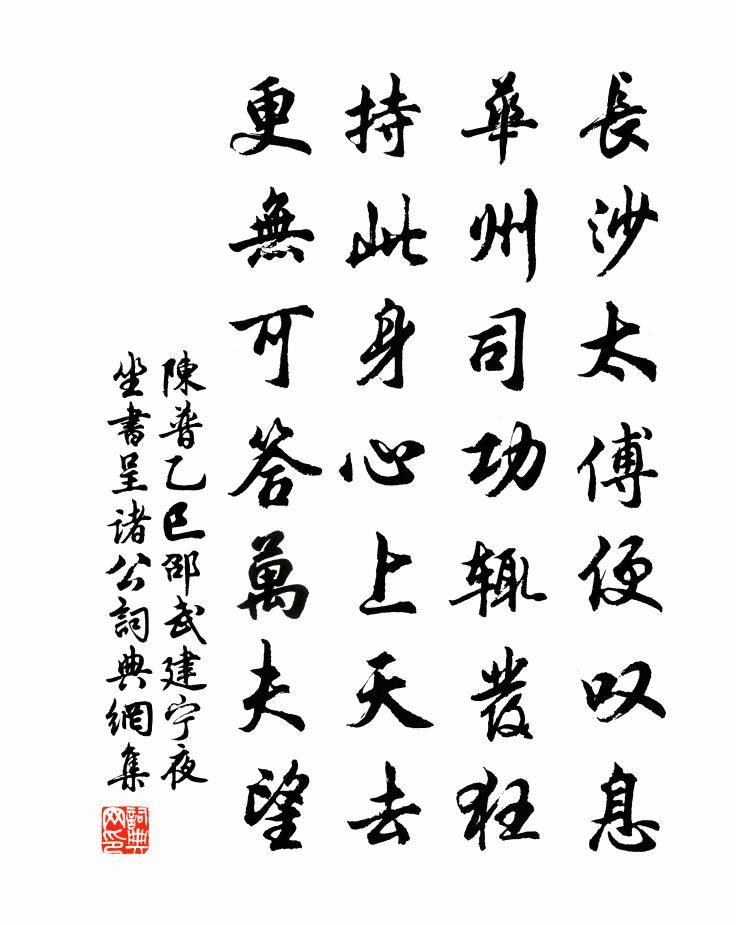 長沙太傅便叹息
華州司功輙發狂
持此身心上天去
更無可答萬夫望
陳普乙巳邵武建宁夜
坐書呈诸公詞典網集
詞典网印